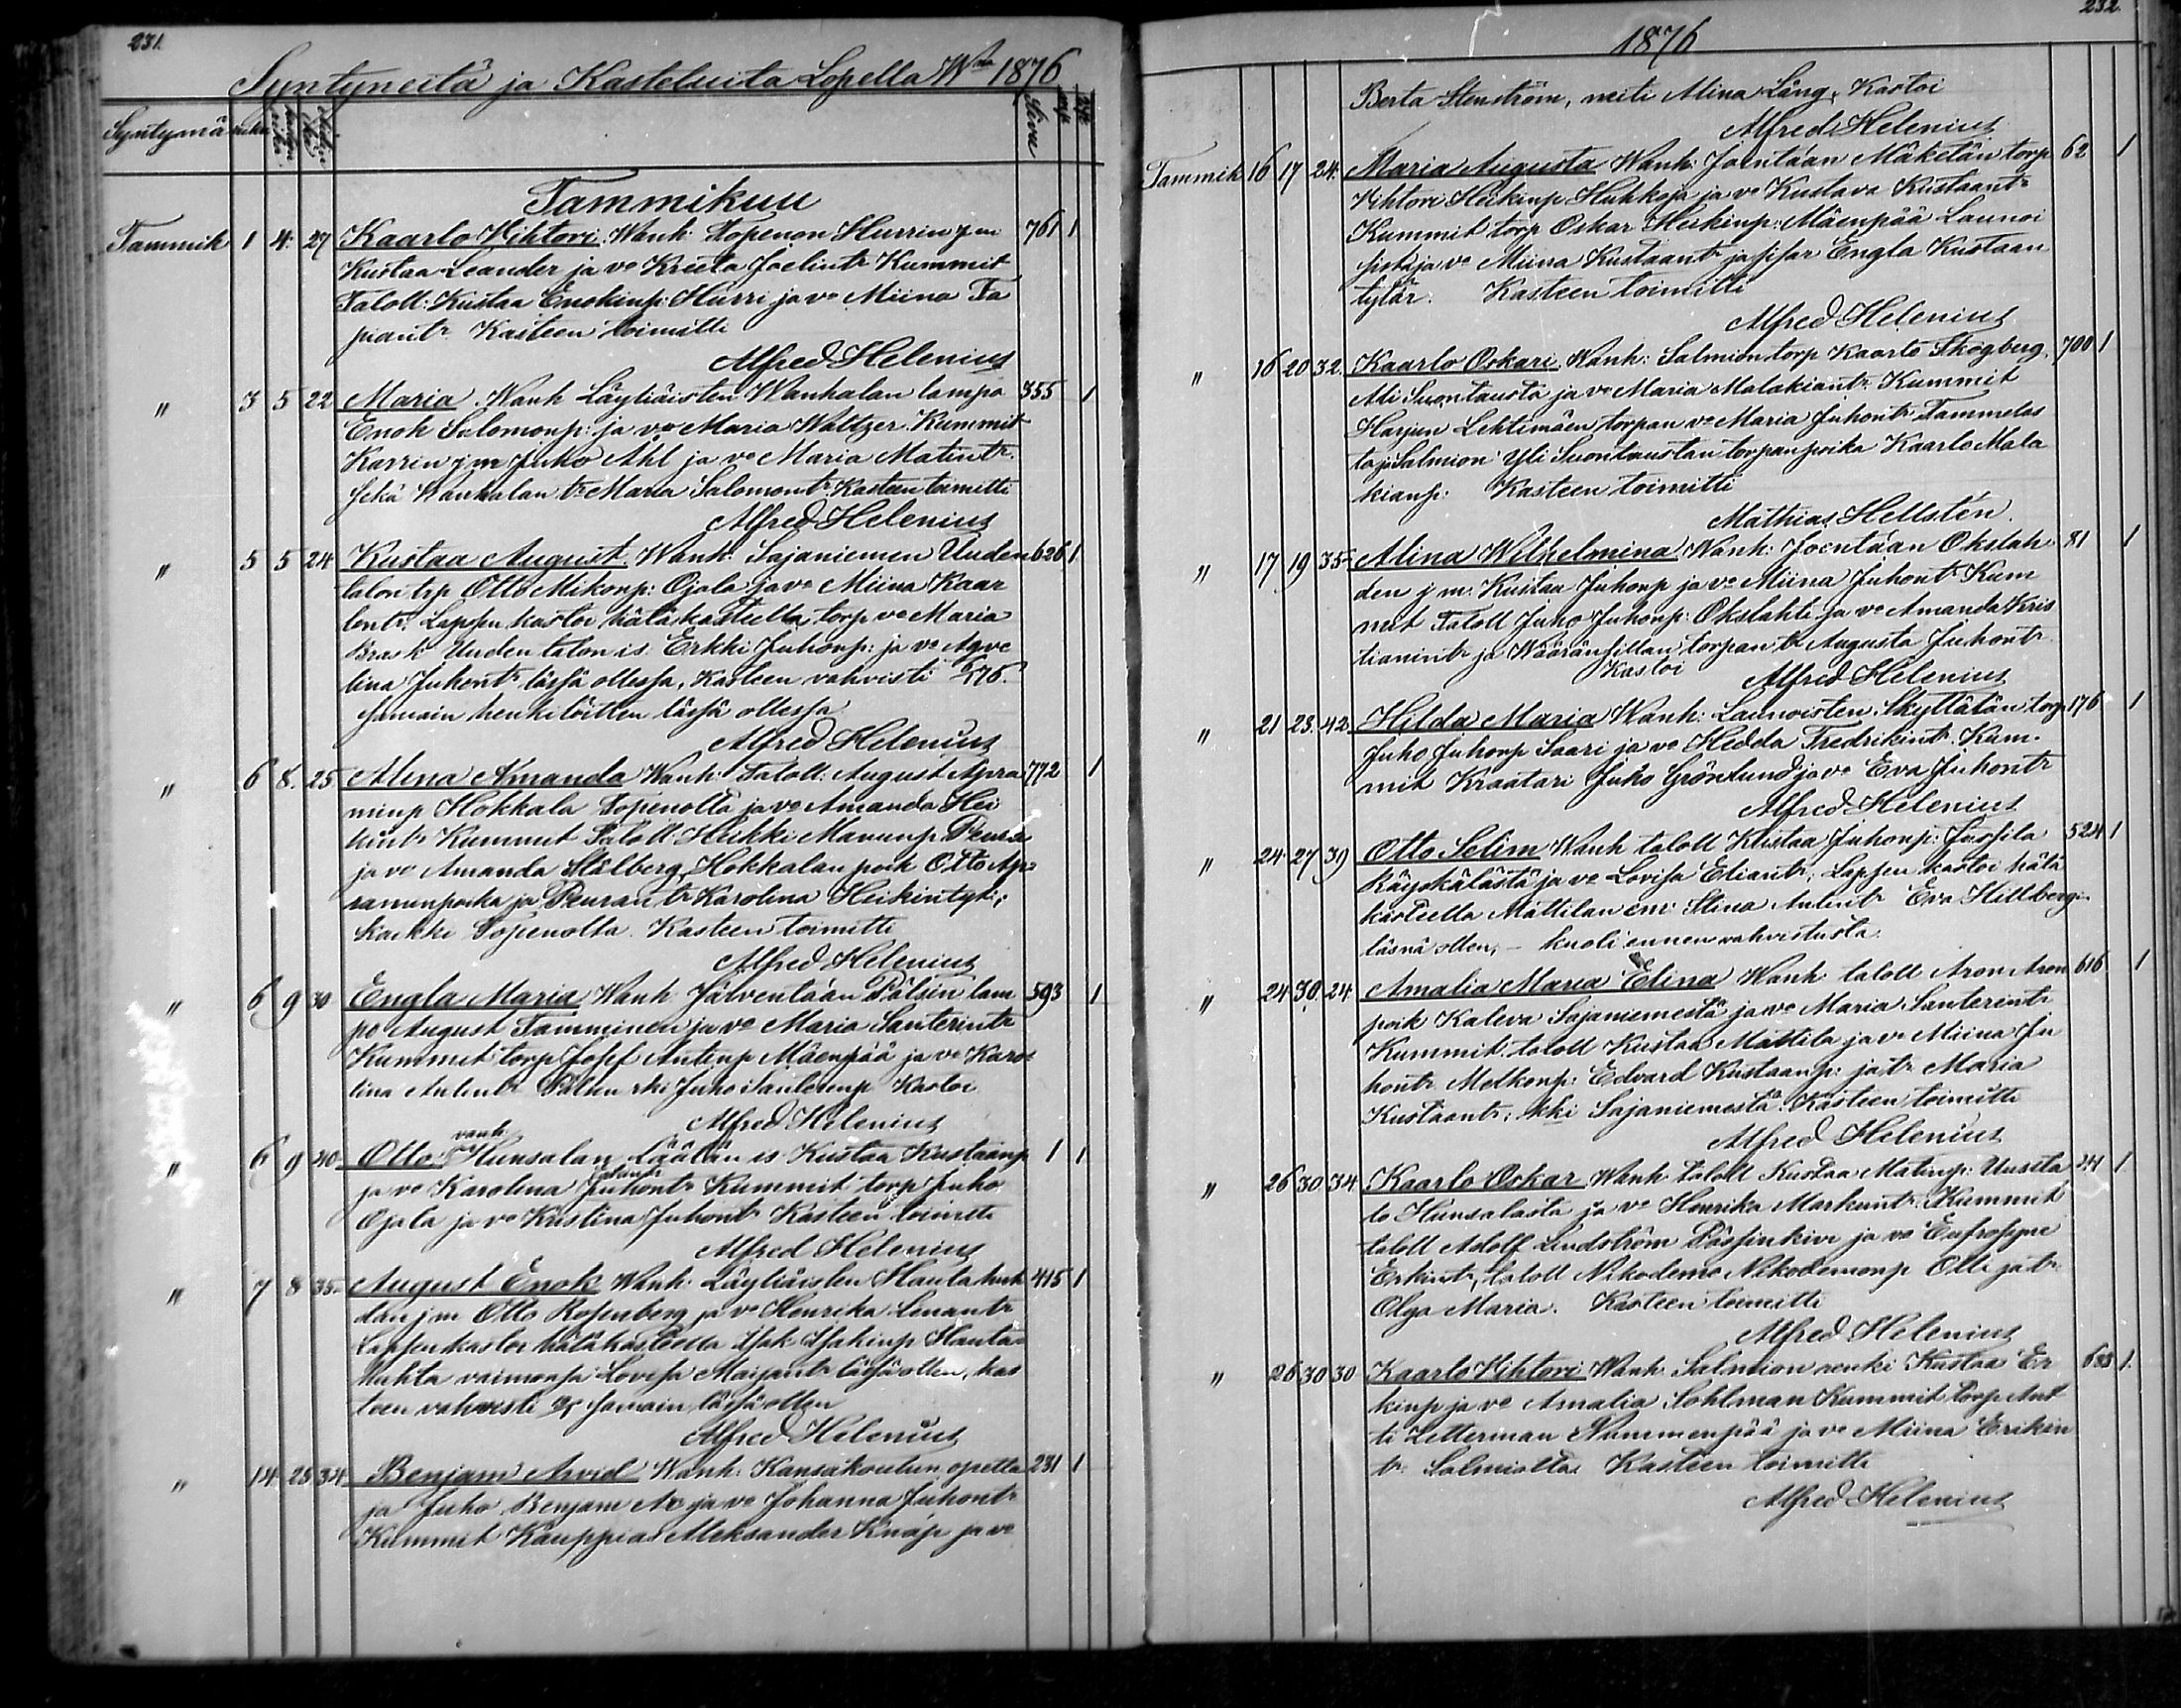 231.
Syntyneitä ja Kasteluita Lopella Wna 1876
Syntymä aika
Sivu
Tammikuu
Tammik 1 4. 27 Kaarlo Vihtori. Wanh. Topenon Hurrin j m 761 1
Kustaa Leander ja vo Kreeta Joelintr Kummit
Taloll: Kustaa Enokinp: Hurri ja vo Miina Ta
piantr Kasteen toimitti
Alfred Helenius
" 3 5 22 Maria. Wanh Läyliäisten Wanhalan lampo 355 1
Enok Salomonp: ja vo Maria Waltzer. Kummit
Karrin j m Juho Ahl ja vo Maria Matintr.
sekä Wanhalan tr Maria Salomontr Kasteen toimitti
Alfred Helenius
" 5 5 24 Kustaa August. Wanh: Sajaniemen Uuden 626 1
talon trp Otto Mikonp: Ojala ja vo Miina Kaar
lontr. Lapsen kastoi hätäkasteella torp vo Maria
Brask Uuden talon is Erkki Juhonp: ja vo Agve
lina Juhontr läsfä ollessa, Kasteen vahvisti
samain henkilöitten läsfä ollessa
Alfred Helenius
" 6 8. 25 Alma Amanda Wanh: Taloll: August Apra 772 1
minp Hokkala Topenolta ja vo Amanda Hei
kintr Kummit Taloll: Heikki Manunp Peura
ja vo Amanda Stålberg, Hokkalan poik Otto Ap
ramin poika ja Peuran tr Karolina Heikintyt:
kaikki Topenolta. Kasteen toimitti
Alfred Helenius
" 6 9 30 Engla Maria, Wanh Järventaan Pälsin lam 593 1
po August Tamminen ja vo Maria Santerintr
Kummit torp Josef Antinp Mäenpää ja vo Karo
lina Antintr Pälsin rki Juho Santerinp Kastoi
Alfred Helenius
vanh.
" 6 9 40 Otto. Hunsalan Läätän is Kustaa Kustaanp 1 1
ja vo Karolina Juhontr Kummit torp Juho
Ojala ja vo Kristina Juhontr Kasteen toimitti
Alfred Helenius
" 7 8 35 August Enok Wanh. Läyliäisten Hauta huh 415 1
dan j m Otto Rosenberg ja vo Henrika Lenantr
Lapsen kastoi hätäkasteella Isak Isakinp Hauta
huhta vaimonsa Lovisa Maijantr läsfä ollen, kas
teen vahvisti samain läsfä ollen
Alfred Helenius
" 14 25 34 Benjam Arvid Wanh: Kansakoulun opetta 231 1
ja Juho Benjam ja vo Johanna Juhontr
Kummit Kauppias Aleksander Knäp ja vo
232.
1876
Berta Stenström, neiti Mina Lång, Kastoi
Alfred Helenius
Tammik 16 17 24. Maria Augusta Wanh: Joentaan Mäkelän torp 62 1
Vihtori Heikinp Huhkoja ja vo Kustava Kustaantr
Kummit torp Oskar Heikinp: Mäenpää Launoi
sista ja vo Miina Kustaantr ja sisar Engla Kustaan
tytär. Kasteen toimitti
Alfred Helenius
" 16 20 32. Kaarlo Oskari. Wanh: Salmion torp Kaarlo Skogberg, 700 1
Ali Suontausta ja vo Maria Malakiantr Kummit
Harjun Lehtimäen torpan vo Maria Juhontr Tammelas
ta ja Salmion Yli Suontaustan torpan poika Kaarlo Mala
kianp: Kasteen toimitti
Mathias Hellstén.
" 17 19 35 Alina Wilhelmina Wanh: Joentaan Okslah 81 1
den j m. Kustaa Juhonp ja vo Miina Juhontr Kum
mit Taloll Juho Juhonp: Okslahti ja vo Amanda Kris
tianintr ja Wääränsillan torpan tr Augusta Juhontr
Kastoi
Alfred Helenius
" 21 23. 42 Hilda Maria Wanh: Launoisten Skyttälän torp 176 1
Juho Juhonp Saari ja vo Hedda Fredrikintr. Kum-
mit Kraatari Juho Grönlund ja vo Eva Juhontr
Alfred Helenius
" 24. 27 39 Otto Selim Wanh taloll Kustaa Juhonp: Jussila 524 1
Räyskälästä ja vo Lovisa Eliantr; Lapsen kastoi hätä
kasteella Mattilan em: Stina Antintr Eva Hillbergin
läsnä ollen, - kuoli ennen vahvistusta.
" 24 30. 24 Amalia Maria Elina Wanh. taloll Aron Aron 616 1
poik Kaleva Sajaniemestä ja vo Maria Santerintr
Kummit. taloll Kustaa Mattila ja vo Miina Ju
hontr Melkonp: Edvard Kustaanp: ja tr Maria
Kustaantr; kki Sajaniemestä. Kasteen toimitti
Alfred Helenius
" 26 30 34 Kaarlo Oskar Wanh taloll Kustaa Matinp: Uusita 1
lo Hunsalasta ja vo Henrika Markuntr. Kummit
taloll Adolf Lindström Pässinkivi ja vo Eufrosyne
Erkintr, taloll Nikodemo Nikodemonp Olli ja tr
Olga Maria. Kasteen toimitti
Alfred Helenius
" 26 30 30 Kaarlo Vihtori Wanh Salmion renki Kustaa Er 683 1.
kinp ja vo Amalia Sohlman Kummit torp Ant
ti Zetterman Nummenpää ja vo Miina Erikin
tr. Salmiolta. Kasteen toimitti
Alfred Helenius